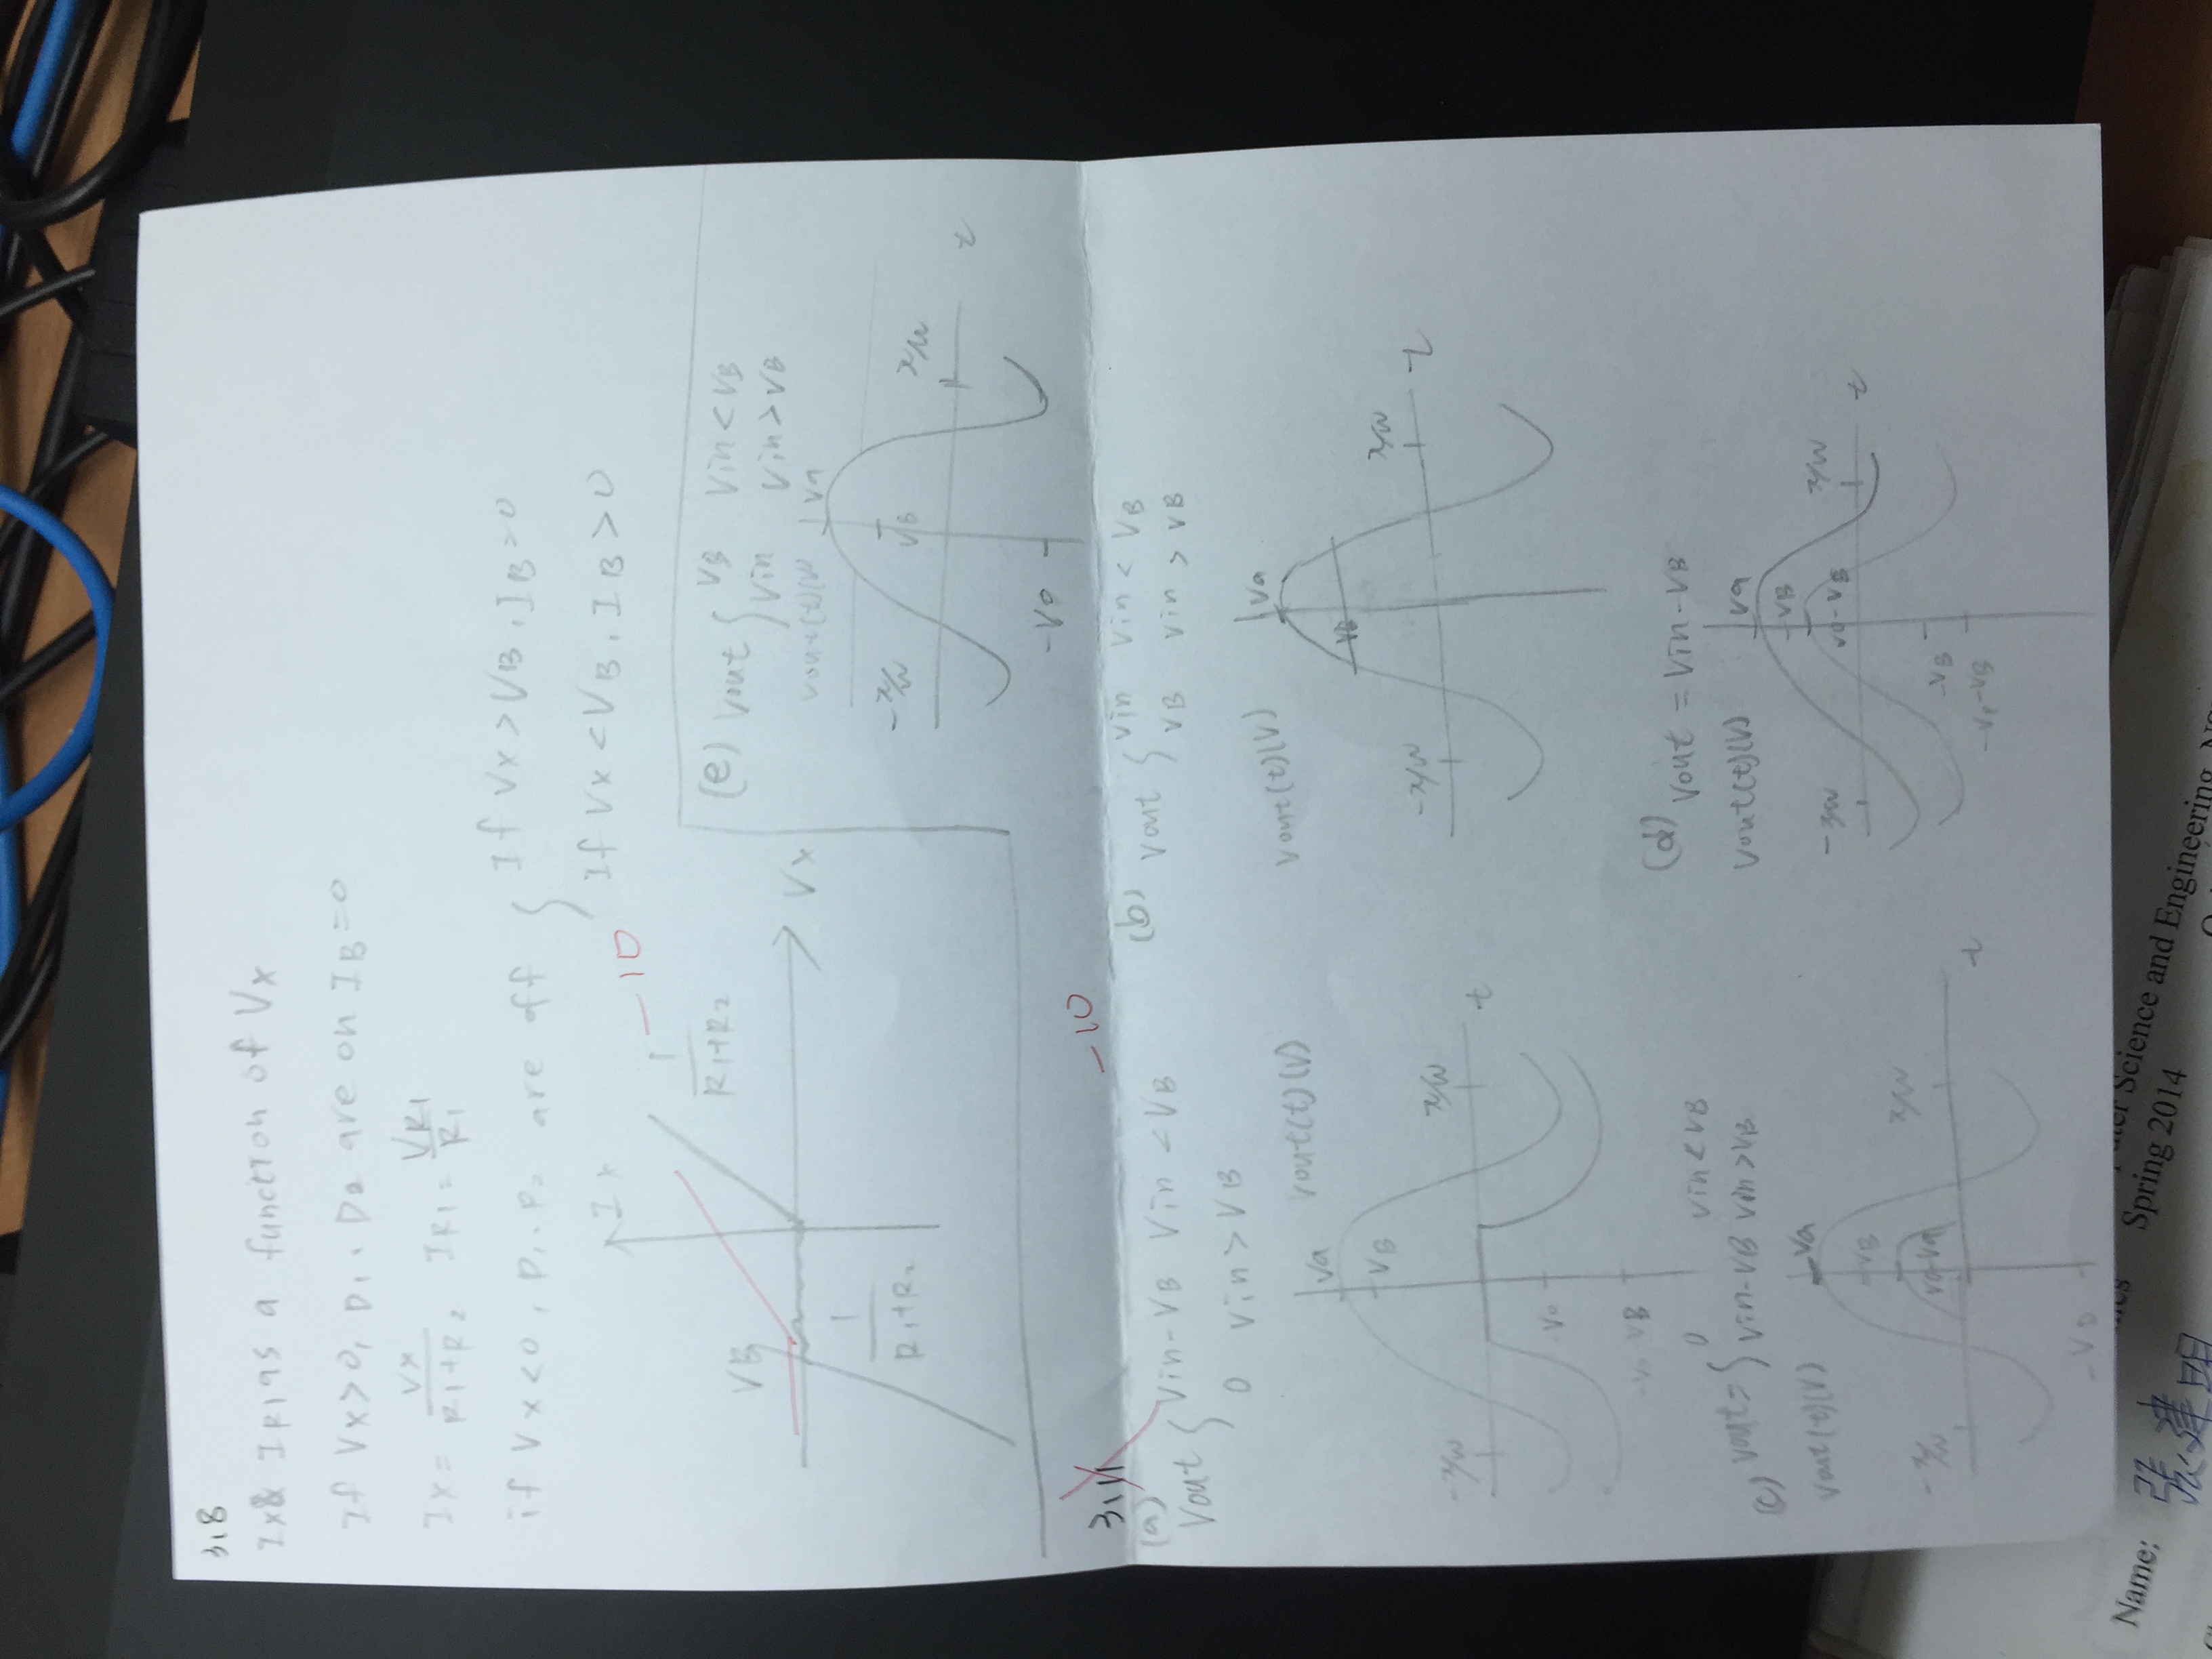 3.8
Ix & IR1 as a function of Vx
If Vx>0, D1, D2 are on IB=0
Ix = Vx/(R1+R2) IR1 = VR1/R1
if Vx<0, D1, D2 are off { If Vx>VB, IB=0
If Vx<VB, IB>0
Ix
1/(R1+R2) -10
VB
Vx
1/(R1+R2)
(e) Vout { VB Vin<VB
Vin Vin>VB
Vout(t)(V) Va
-π/w VB π/w
t
-Vo
3.11 -10
(a)
Vout { Vin-VB Vin<VB
0 Vin>VB
Vout(t)(V)
Va
VB
-π/w π/w
t
-Vo
-Vo-VB
(b) Vout { Vin Vin<VB
VB Vin>VB
Vout(t)(V) Va
VB
-π/w π/w
t
(c) Vout = { 0 Vin<VB
Vin-VB Vin>VB
Vout(t)(V) Va
VB
-π/w π/w
t
(d) Vout = Vin-VB
Vout(t)(V) Va
VB
π/w
t
-VB
Name: 張建明
Spring 2014
Science and Engineering,